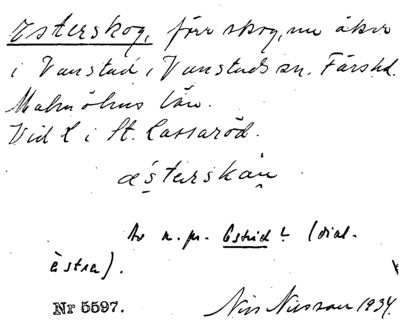 Esterskog, förr skog, nu åker
i Vanstad i Vanstads sn. Färs hd.
Malmöhus län.
Vid L i St. Cassaröd.
æ̀sterskån
Av n. pr. Estrid? (dial.
èstra).
Nr 5597. Nils Nilsson 1934.